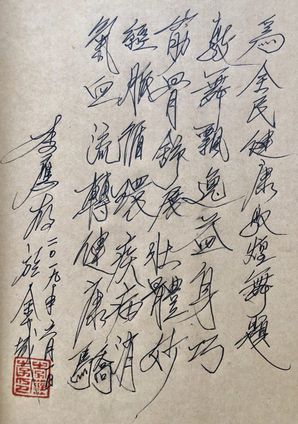 為全民健康敦煌舞題
敦舞飄逸益身巧
筋骨舒展壯體妙
經脈循環疾病消
氣血流轉健康驕
李應存二〇一九年月日
於金城